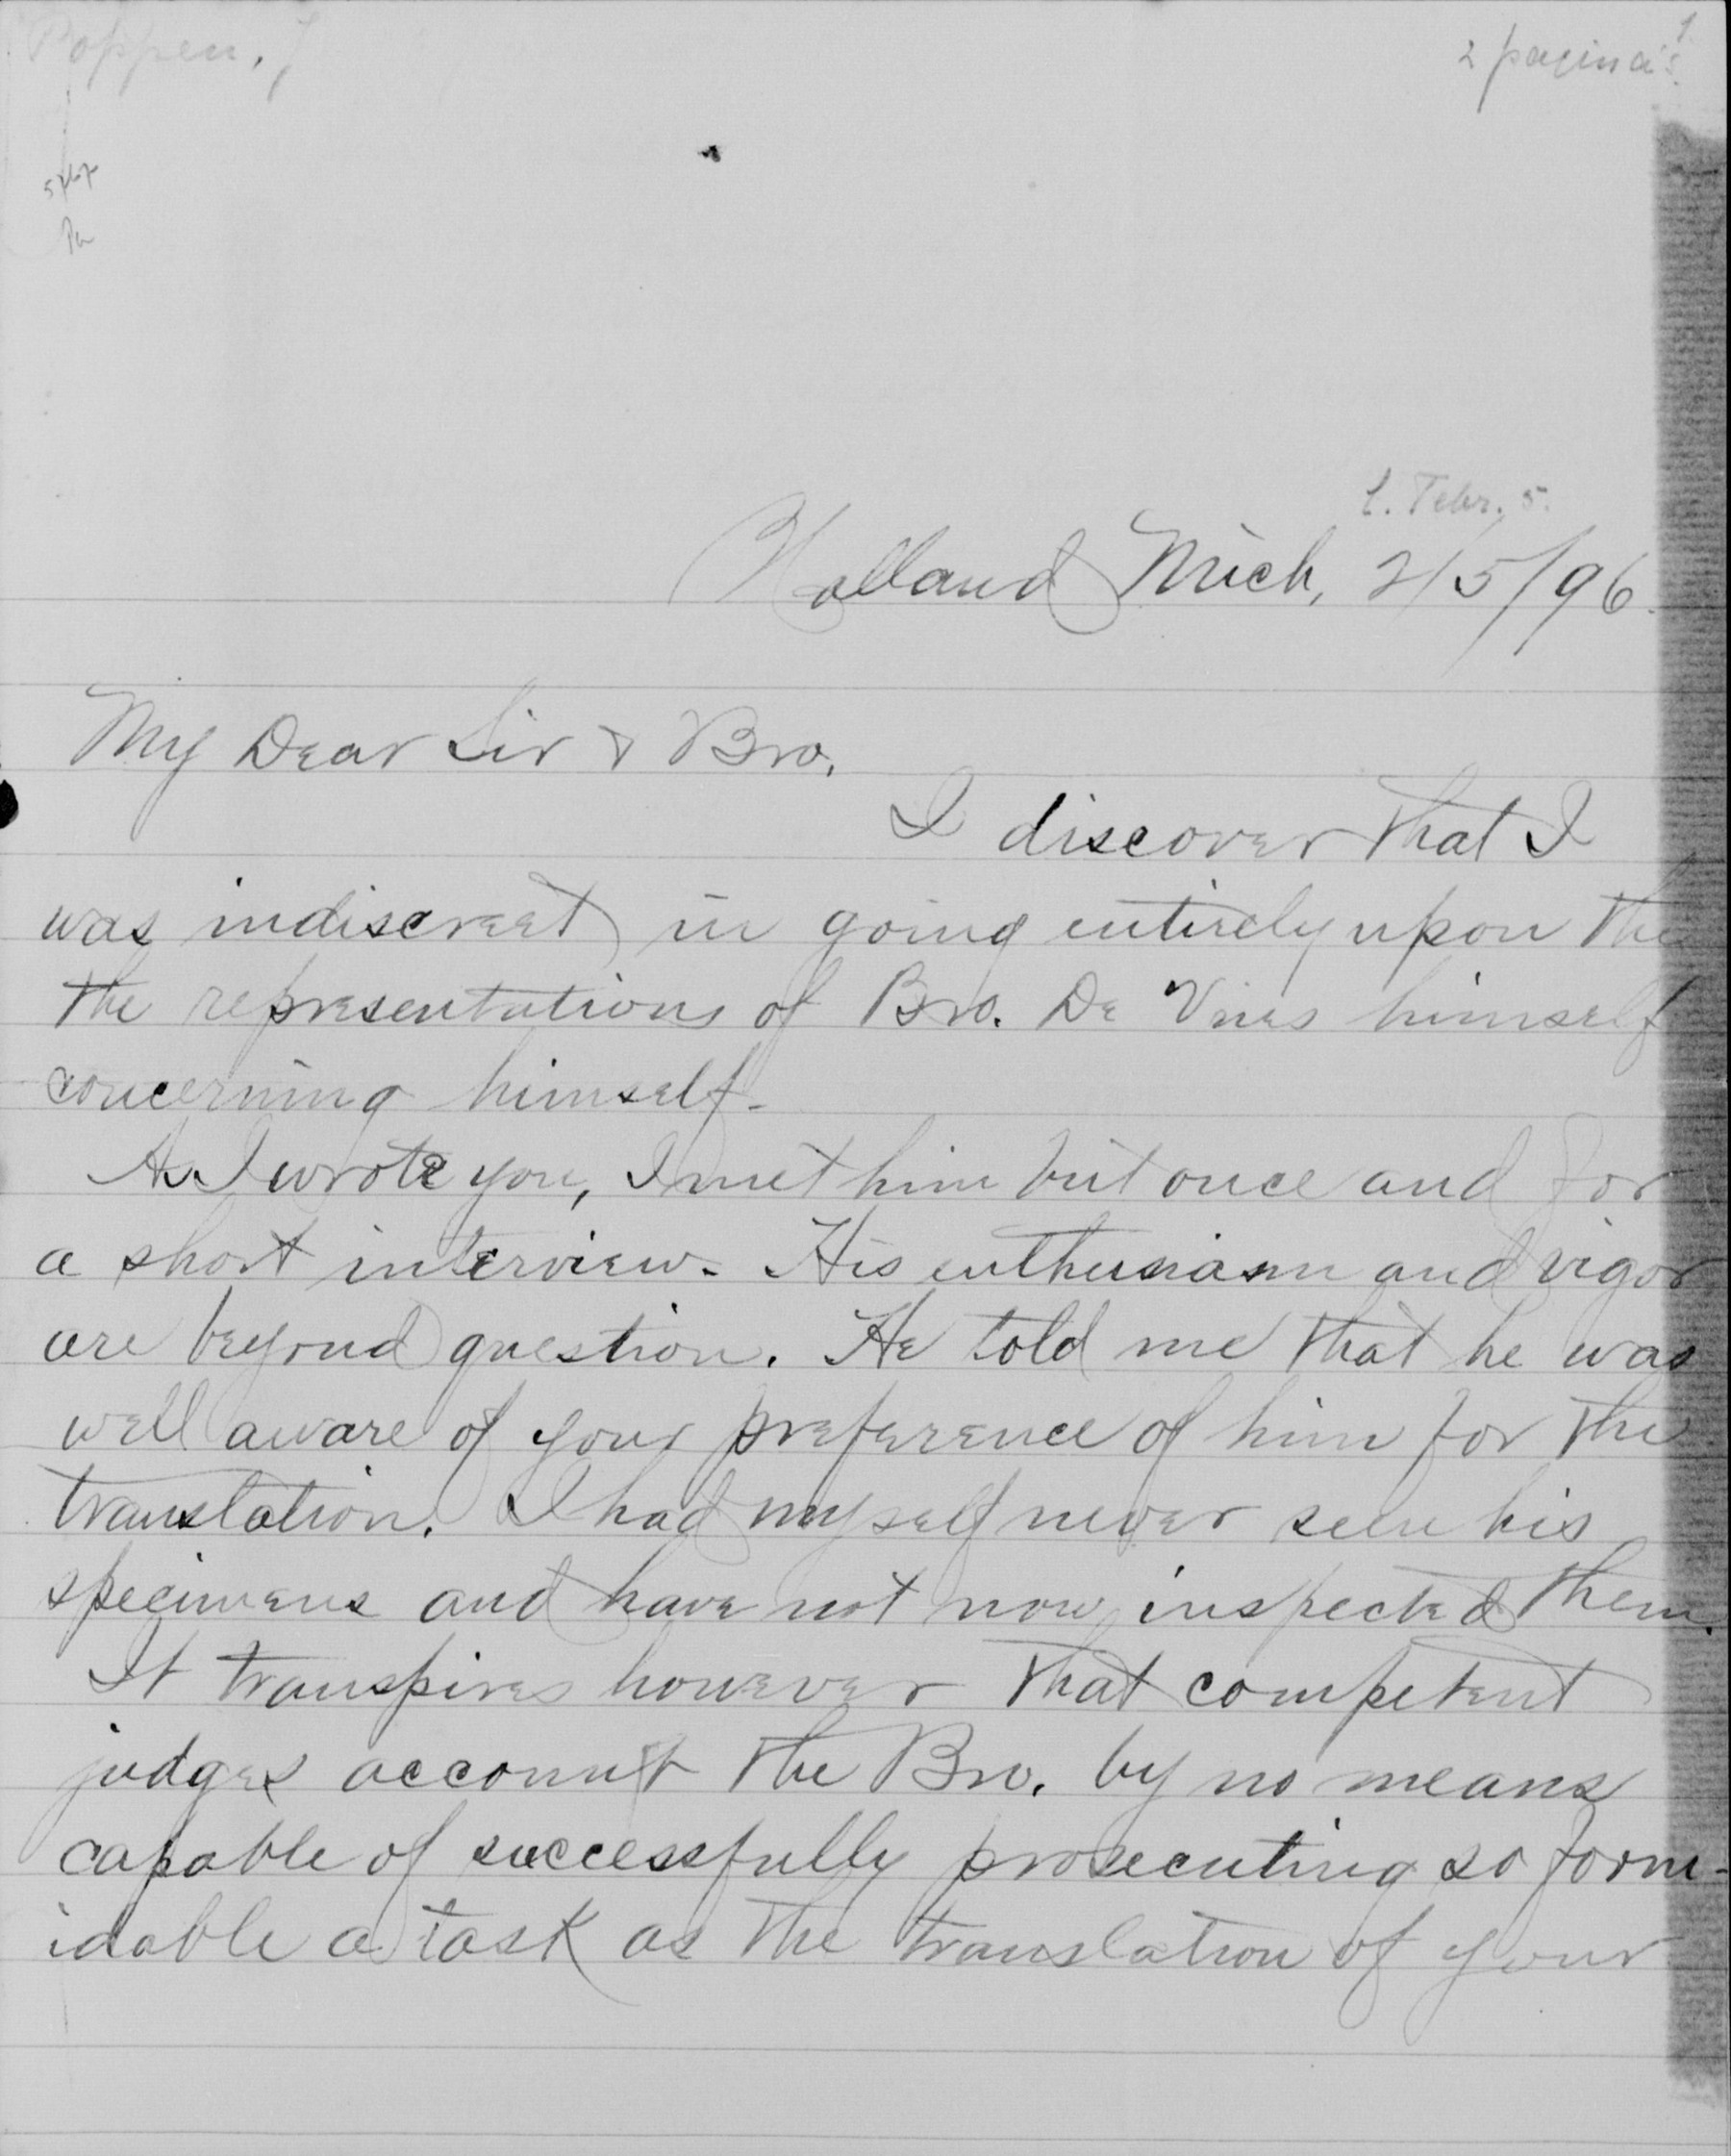 Poppen, J
2 pagina's.
1
Pa
Febr. 5.
Holland Mich, 2/5/96.
My Dear Sir & Bro.
I discover that I
was indiscreet in going entirely upon the
the representations of Bro. De Vries himself
concerning himself.
As I wrote you, I met him but once and for
a short interview. His enthusiasm and vigor
are beyond question. He told me that he was
well aware of your preference of him for the
translation. I had myself never seen his
specimens and have not now inspected them.
It transpires however that competent
judges account the Bro. by no means
capable of successfully prosecuting so form-
idable a task as the translation of your